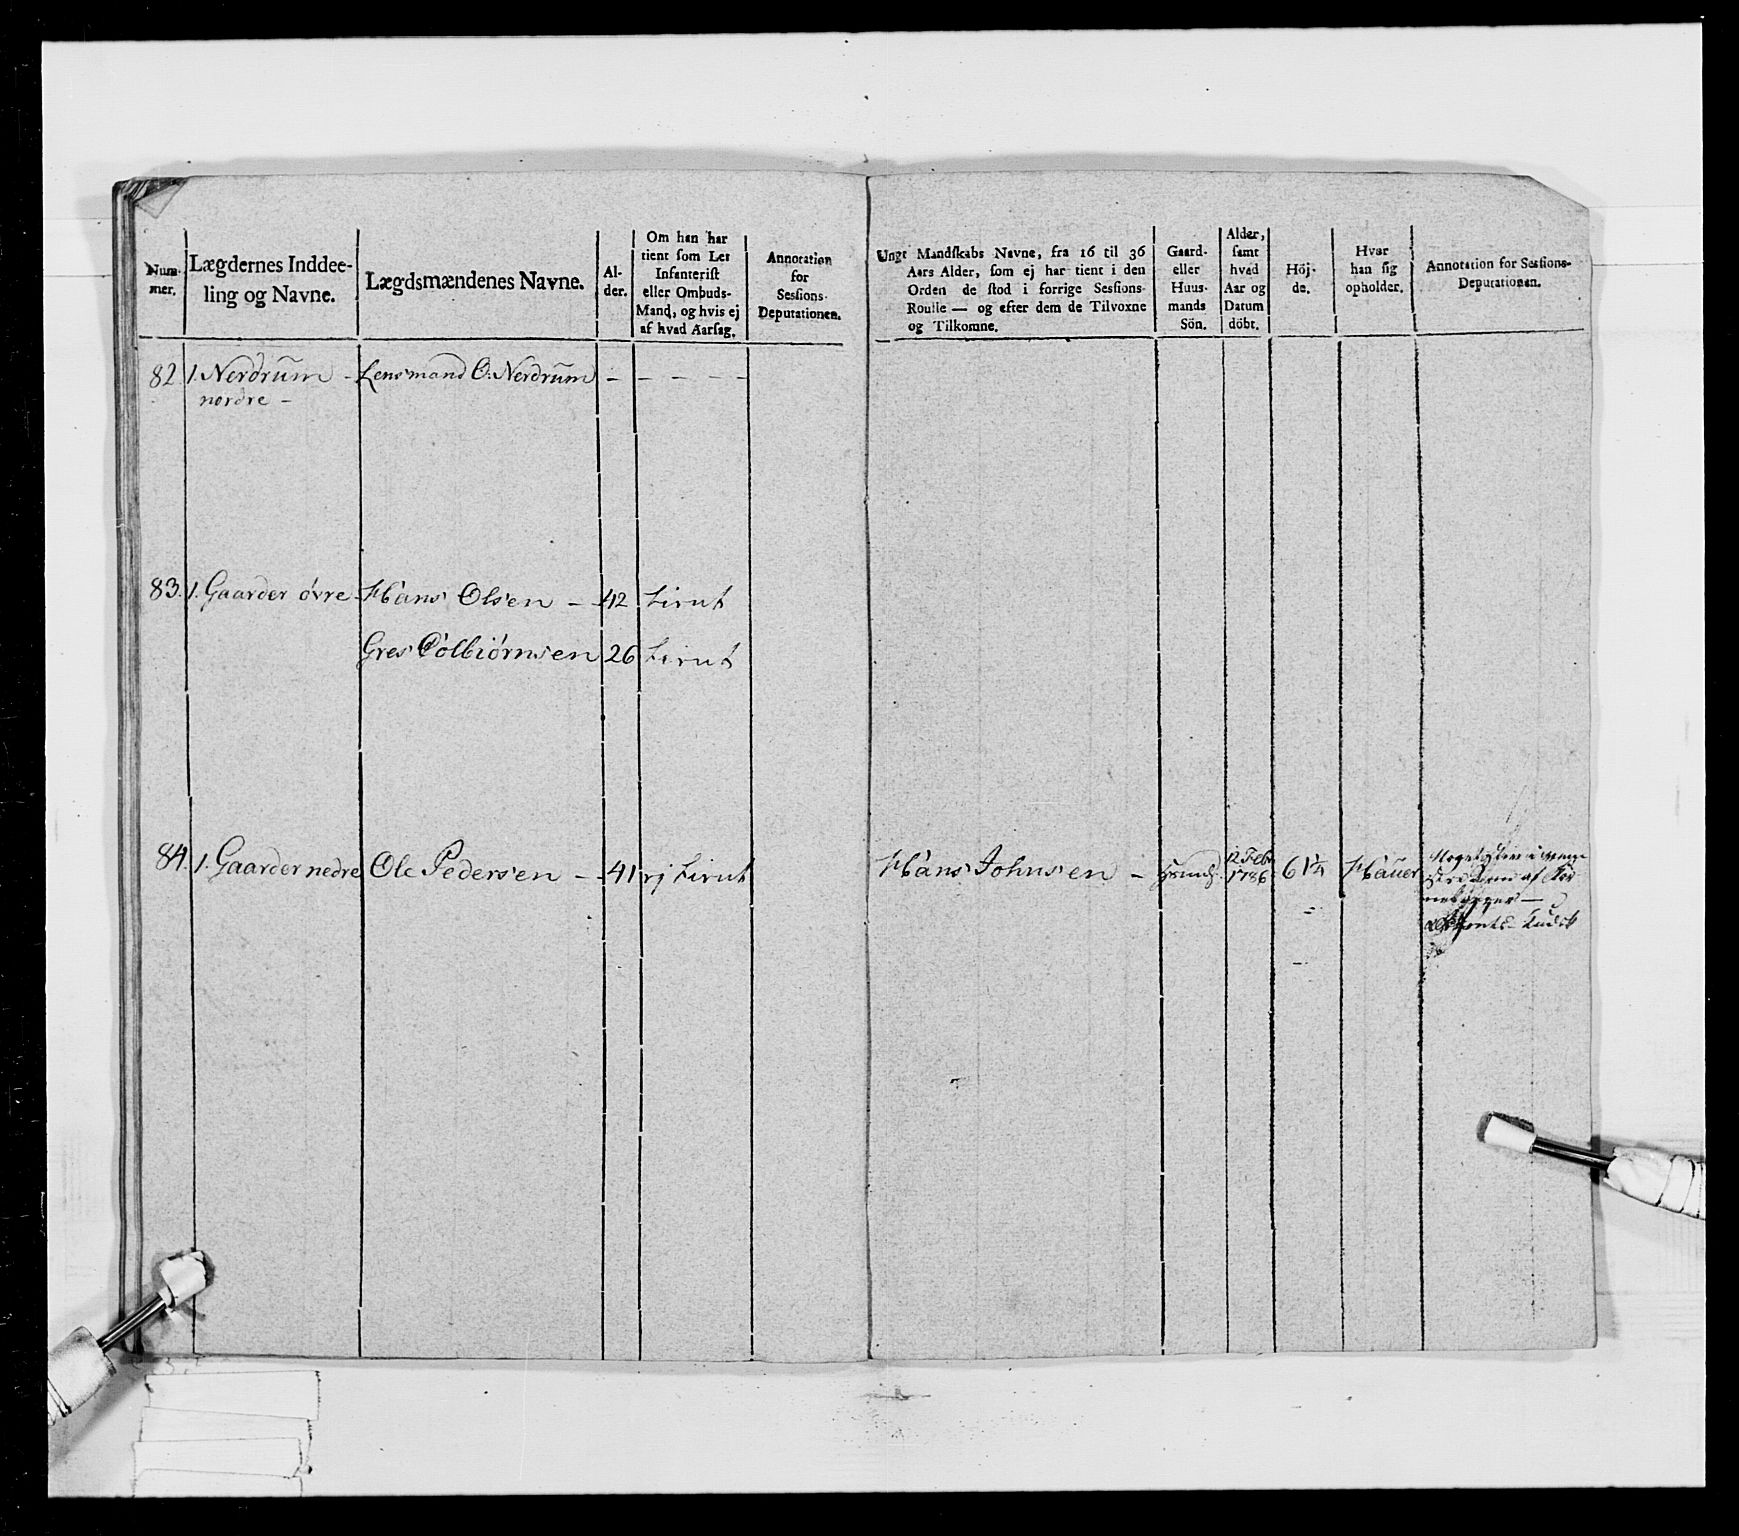 Num-
mer.
Lægdernes Inddee-
ling og Navne.
Lægdsmændenes Navne.
Al-
der.
Om han har
tient som Let
Infanterist
eller Ombuds-
Mand, og hvis ej
af hvad Aarsag.
Annotation
for
Sessions-
Deputationen.
Ungt Mandskabs Navne, fra 16 til 36
Aars Alder, som ej har tient i den
Orden de stod i forrige Sessions-
Roulle — og efter dem de Tilvoxne
og Tilkomne.
Gaard-
eller
Huus-
mands
Sön.
Alder,
samt
hvad
Aar og
Datum
döbt.
Höj-
de.
Hvor
han sig
opholder.
Annotation for Sessions-
Deputationen.
82. 1. Nerdrum - Lensmand O. Nerdrum - - - - -
nordre -
83. 1. Gaarder øvre - Hans Olsen - 42
Gres Colbiørnsen 26
84. 1. Gaarder nedre Ole Pedersen - 41 Hans Johnsen - 12 Febr 1786 6 1/4